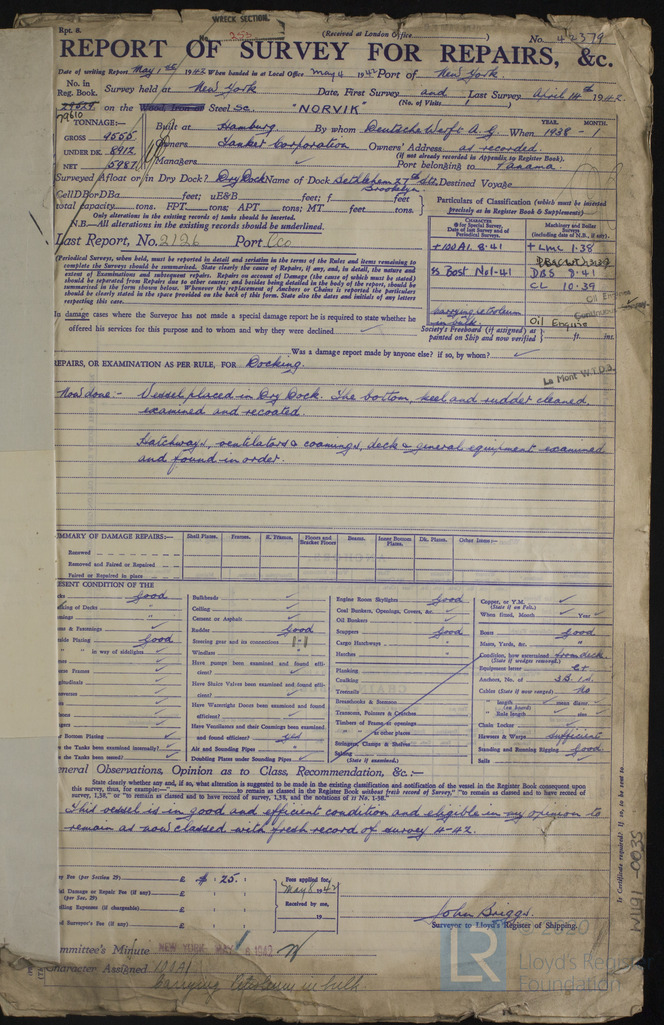 Rpt. 8.
WRECK SECTION.
(Received at London Office )
No. 42379
REPORT OF SURVEY FOR REPAIRS, &c.
Date of writing Report May 1st 1942 When handed in at Local Office May 4 1942 Port of New York
No. in Reg. Book. Survey held at New York Date, First Survey and Last Survey April 14th 1942
(No. of Visits 1 )
29029 on the Wood, Iron or Steel Sc. "NORVIK"
79610
TONNAGE:—
GROSS 9555
UNDER DK. 8912
NET 5987
Built at Hamburg By whom Deutsche Werft A.G. When 1938 - 1
YEAR. MONTH.
Owners Tanker Corporation Owners' Address as recorded.
(if not already recorded in Appendix to Register Book)
Managers Port belonging to Panama
Surveyed Afloat or in Dry Dock? Dry Dock Name of Dock Bethlehem 27th St. Brooklyn Destined Voyage
Cell DB or DBa feet; uE&B feet; f feet
total capacity tons. FPT tons; APT tons; MT feet tons.
Only alterations in the existing records of tanks should be inserted.
N.B.—All alterations in the existing records should be underlined.
Last Report, No. 2126 Port Cco
Particulars of Classification (which must be inserted precisely as in Register Book & Supplements)
CHARACTER for Special Survey, Date of last Survey and of Periodical Surveys.
Machinery and Boiler Surveys. (including date of N.B., if any).
+100A1. 8.41
+LMC 1.38
SS Bost No1-41
DBS 8.41
CL 10.39
Oil Engine
carrying petroleum in bulk
Oil Engine
Society's Freeboard (if assigned) as painted on Ship and now verified ft. ins.
(Periodical Surveys, when held, must be reported in detail and seriatim in the terms of the Rules and items remaining to complete the Surveys should be summarised. State clearly the cause of Repairs, if any, and, in detail, the nature and extent of Examinations and subsequent repairs. Repairs on account of Damage (the cause of which must be stated) should be separated from Repairs due to other causes; and besides being detailed in the body of the report, should be summarised in the form shown below. Whenever the replacement of Anchors or Chains is reported the particulars should be clearly stated in the space provided on the back of this form. State also the dates and initials of any letters respecting this case.
In damage cases where the Surveyor has not made a special damage report he is required to state whether he
offered his services for this purpose and to whom and why they were declined
Was a damage report made by anyone else? if so, by whom?
REPAIRS, OR EXAMINATION AS PER RULE, FOR Docking.
La Mont W.T.D.B.
Now done:- Vessel placed in Dry Dock. The bottom, keel and rudder cleaned,
examined and recoated.
Hatchways, ventilators & coamings, deck & general equipment examined
and found in order.
SUMMARY OF DAMAGE REPAIRS:—
Shell Plates. Frames. R. Frames. Floors and Bracket Floors Beams. Inner Bottom Plates. Dk. Plates. Other Items:—
Renewed
Removed and Faired or Repaired
Faired or Repaired in place
PRESENT CONDITION OF THE
Decks good
Caulking of Decks "
Coamings "
& Fastenings "
Outside Plating good
" " in way of sidelights
Frames
Bottom Plating
Have the Tanks been examined internally?
Have the Tanks been tested?
Bulkheads
Ceiling
Cement or Asphalt
Rudder good
Steering gear and its connections
Windlass
Have pumps been examined and found efficient?
Have Sluice Valves been examined and found efficient?
Have Watertight Doors been examined and found efficient?
Have Ventilators and their Coamings been examined and found efficient? yes
Air and Sounding Pipes
Doubling Plates under Sounding Pipes
Engine Room Skylights good
Coal Bunkers, Openings, Covers, &c.
Oil Bunkers
Scuppers good
Cargo Hatchways
Hatches
Planking
Caulking
Treenails
Breasthooks & Stemson
Transoms, Pointers & Crutches
Timbers of Frame at openings
" " at other places
Stringers, Clamps & Shelves
Salting
(State if examined.)
Copper, or Y.M.
(State if on Felt.)
When fixed, Month Year
Boats good
Masts, Yards, &c. "
Condition, how ascertained from deck
(State if wedges removed.)
Equipment letter
Anchors, No. of 3B 1d.
Cables (State if now ranged) No
" length mean diamr.
(on board)
" Rule length size
Chain Locker
Hawsers & Warps sufficient
Standing and Running Rigging good
Sails
General Observations, Opinion as to Class, Recommendation, &c.:—
State clearly whether any and, if so, what alteration is suggested to be made in the existing classification and notification of the vessel in the Register Book consequent upon
This vessel is in good and efficient condition and eligible in my opinion to
remain as now classed with fresh record of survey 4-42.
Survey Fee (per Section 29) £ $ 25.
Special Damage or Repair Fee (if any) (per Sec. 29) £
Travelling Expenses (if chargeable) £
Surveyor's Fee (if any) £
Fees applied for, May 8 1942
Received by me, 19
John Briggs.
Surveyor to Lloyd's Register of Shipping.
Committee's Minute NEW YORK MAY 6 1942
Character Assigned 100A1
Carrying Petroleum in bulk
Is Certificate required? If so, to be sent to
W1191-0035
LR
Lloyd's Register
Foundation